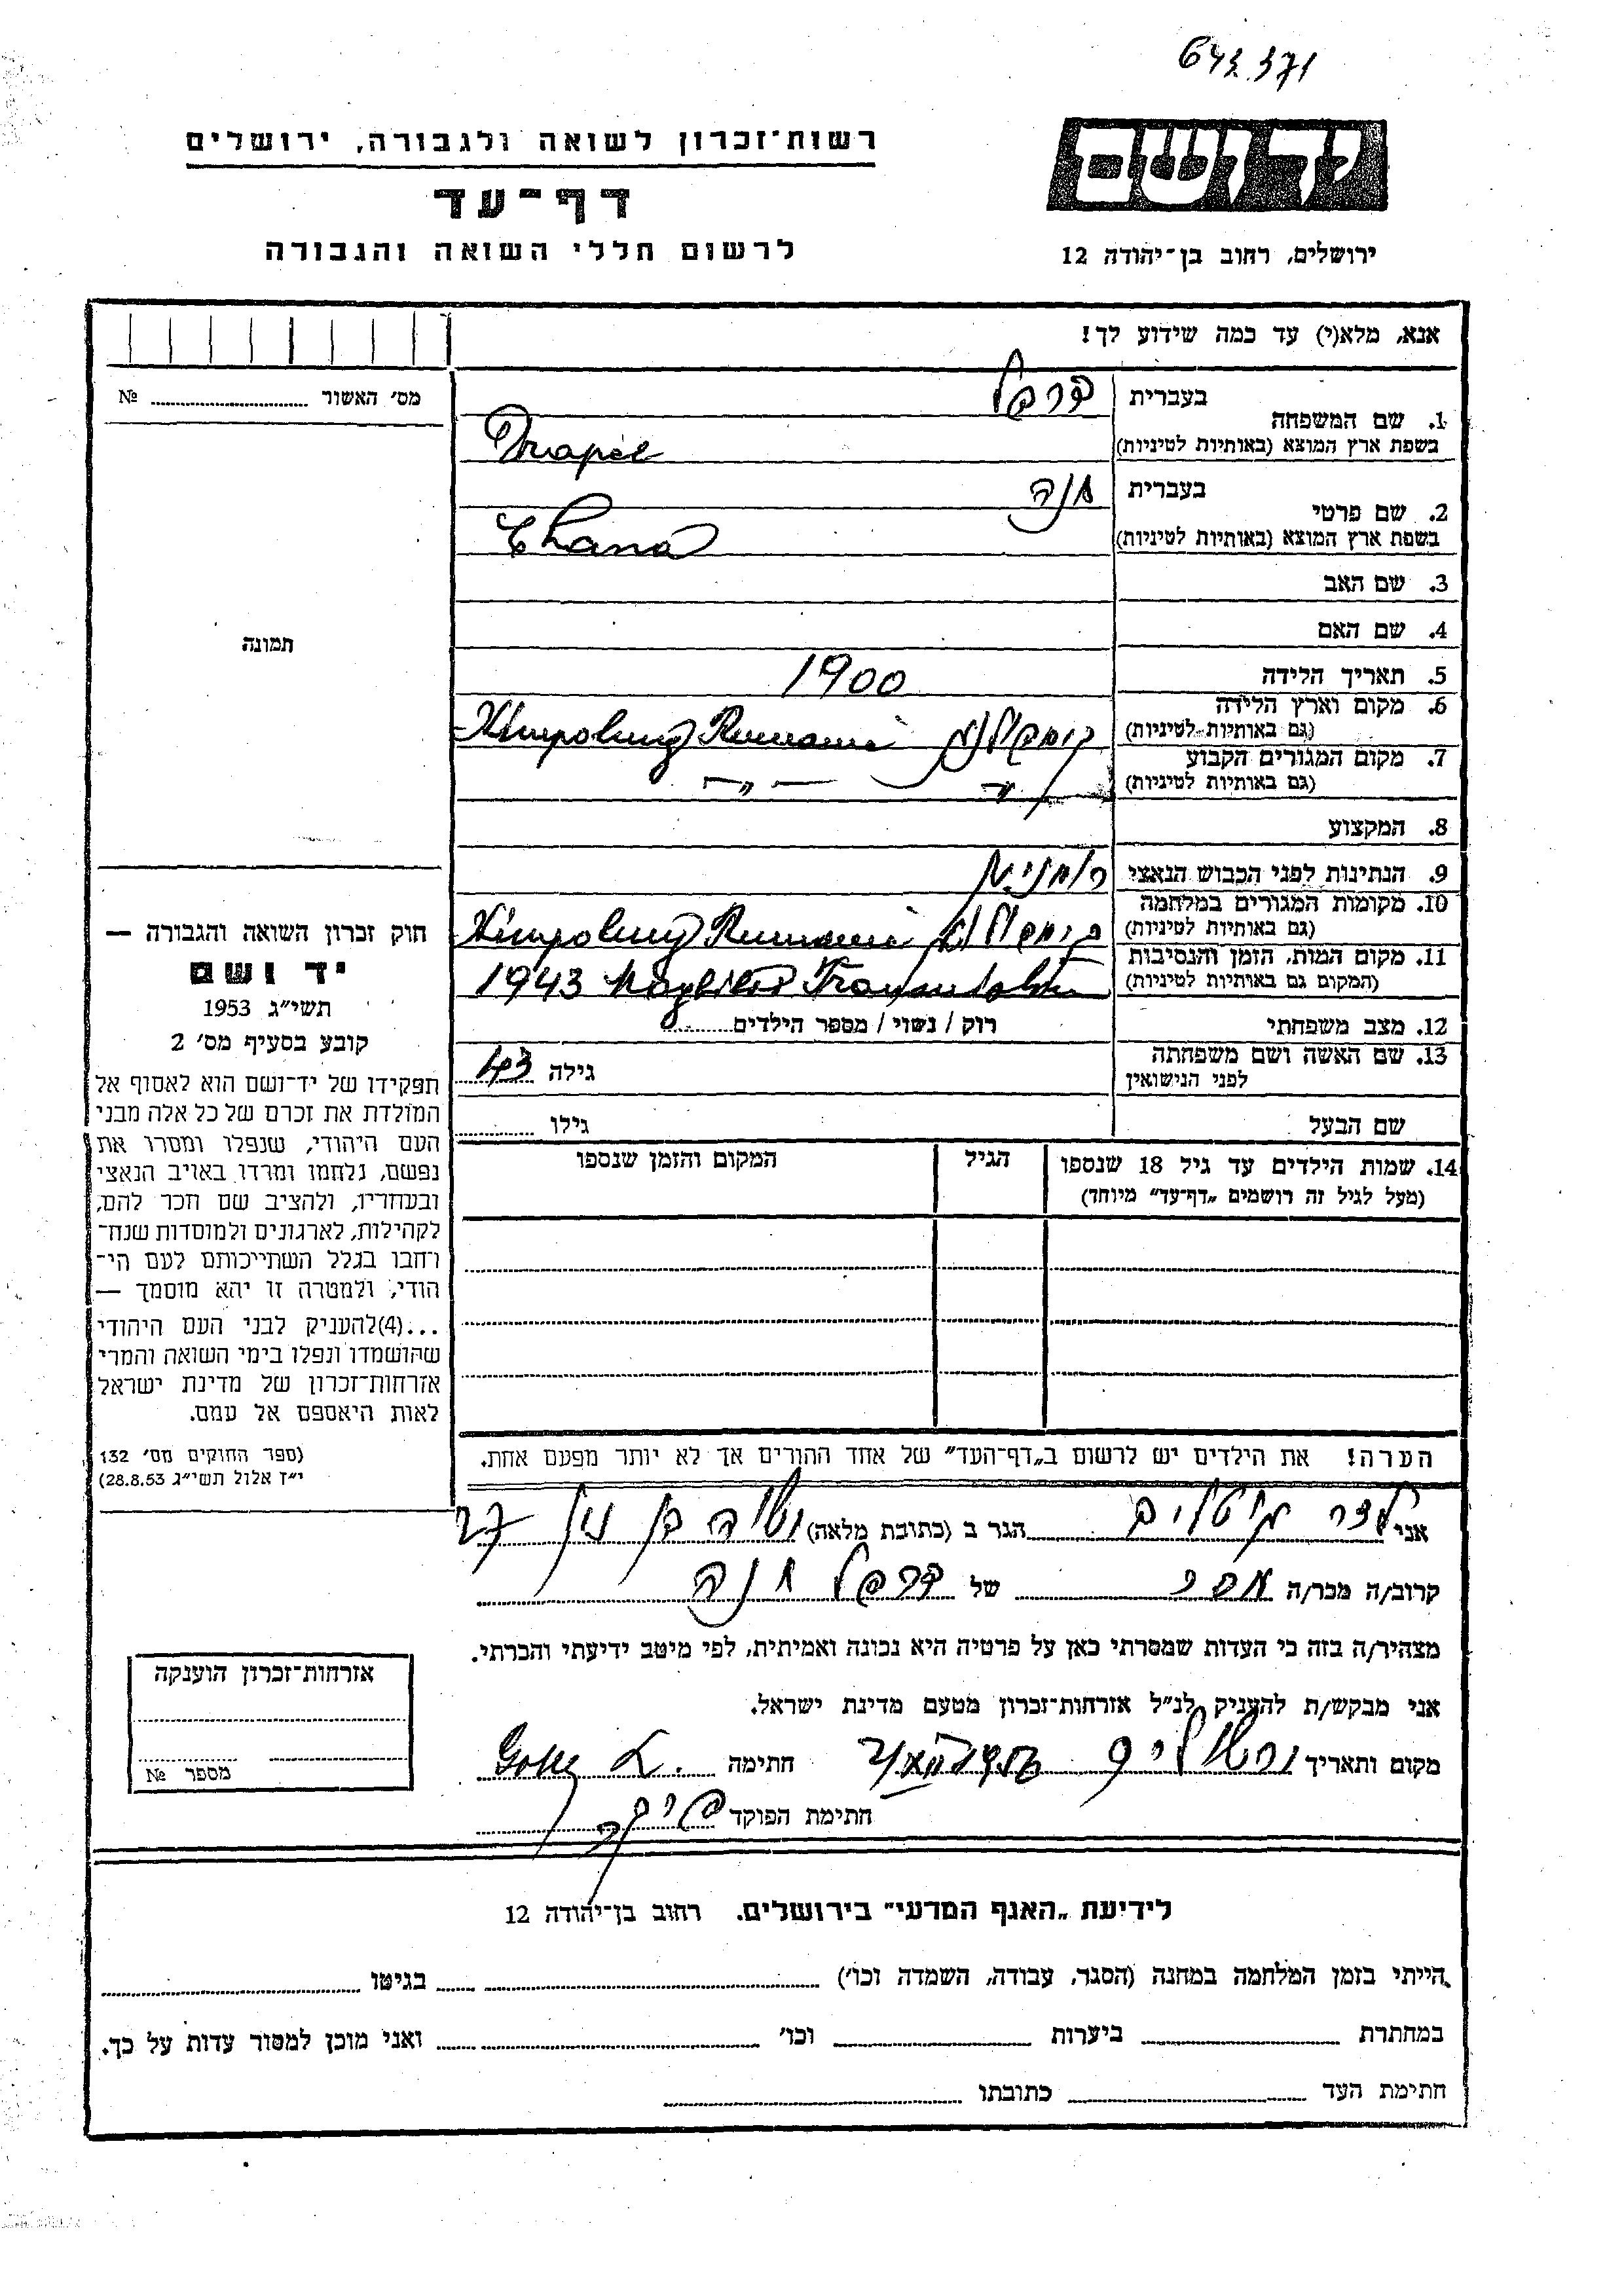 רשות־זכרון לשואה ולגבורה, ירושלים
יד ושם
דף־עד
לרשום חללי השואה והגבורה
ירושלים, רחוב בן־יהודה 12
אנא, מלא(י) עד כמה שידוע לך!
מס׳ האשור № 
1. שם המשפחה
בעברית דרפל
בשפת ארץ המוצא (באותיות לטיניות) Drapel
2. שם פרטי
בעברית חנה
בשפת ארץ המוצא (באותיות לטיניות) Chana
3. שם האב
4. שם האם
תמונה
5. תאריך הלידה 1900
6. מקום וארץ הלידה
(גם באותיות לטיניות) קימפולונג Kimpolung Rumania
7. מקום המגורים הקבוע
(גם באותיות לטיניות) — " —
8. המקצוע
9. הנתינות לפני הכבוש הנאצי רומנית
10. מקומות המגורים במלחמה
(גם באותיות לטיניות) קימפולונג Kimpolung Rumania
11. מקום המות, הזמן והנסיבות
(המקום גם באותיות לטיניות) 1943
12. מצב משפחתי רוק / נשוי / מספר הילדים
13. שם האשה ושם משפחתה
לפני הנישואין גילה 43
שם הבעל גילו
14. שמות הילדים עד גיל 18 שנספו הגיל המקום והזמן שנספו
(מעל לגיל זה רושמים „דף־עד״ מיוחד)
חוק זכרון השואה והגבורה —
יד ושם
תשי״ג 1953
קובע בסעיף מס׳ 2
תפקידו של יד־ושם הוא לאסוף אל
המולדת את זכרם של כל אלה מבני
העם היהודי, שנפלו ומסרו את
נפשם, נלחמו ומרדו באויב הנאצי
ובעוזריו, ולהציב שם וזכר להם,
לקהילות, לארגונים ולמוסדות שנח־
רבו בגלל השתייכותם לעם הי־
הודי, ולמטרה זו יהא מוסמך —
...(4)להעניק לבני העם היהודי
שהושמדו ונפלו בימי השואה והמרי
אזרחות־זכרון של מדינת ישראל
לאות היאספם אל עמם.
(ספר החוקים מס׳ 132
י״ז אלול תשי״ג 28.8.53)
הערה! את הילדים יש לרשום ב„דף־העד״ של אחד ההורים אך לא יותר מפעם אחת.
אני הגר ב (כתובת מלאה) בן נון 27
קרוב/ה מכר/ה של דרפל חנה
מצהיר/ה בזה כי העדות שמסרתי כאן על פרטיה היא נכונה ואמיתית, לפי מיטב ידיעתי והכרתי.
אני מבקש/ת להעניק לנ״ל אזרחות־זכרון מטעם מדינת ישראל.
מקום ותאריך ירושלים חתימה
חתימת הפוקד
אזרחות־זכרון הוענקה
מספר №
לידיעת „האגף המדעי״ בירושלים. רחוב בן־יהודה 12
הייתי בזמן המלחמה במחנה (הסגר, עבודה, השמדה וכו׳) בגיטו
במחתרת ביערות וכו׳ ואני מוכן למסור עדות על כך.
חתימת העד כתובתו